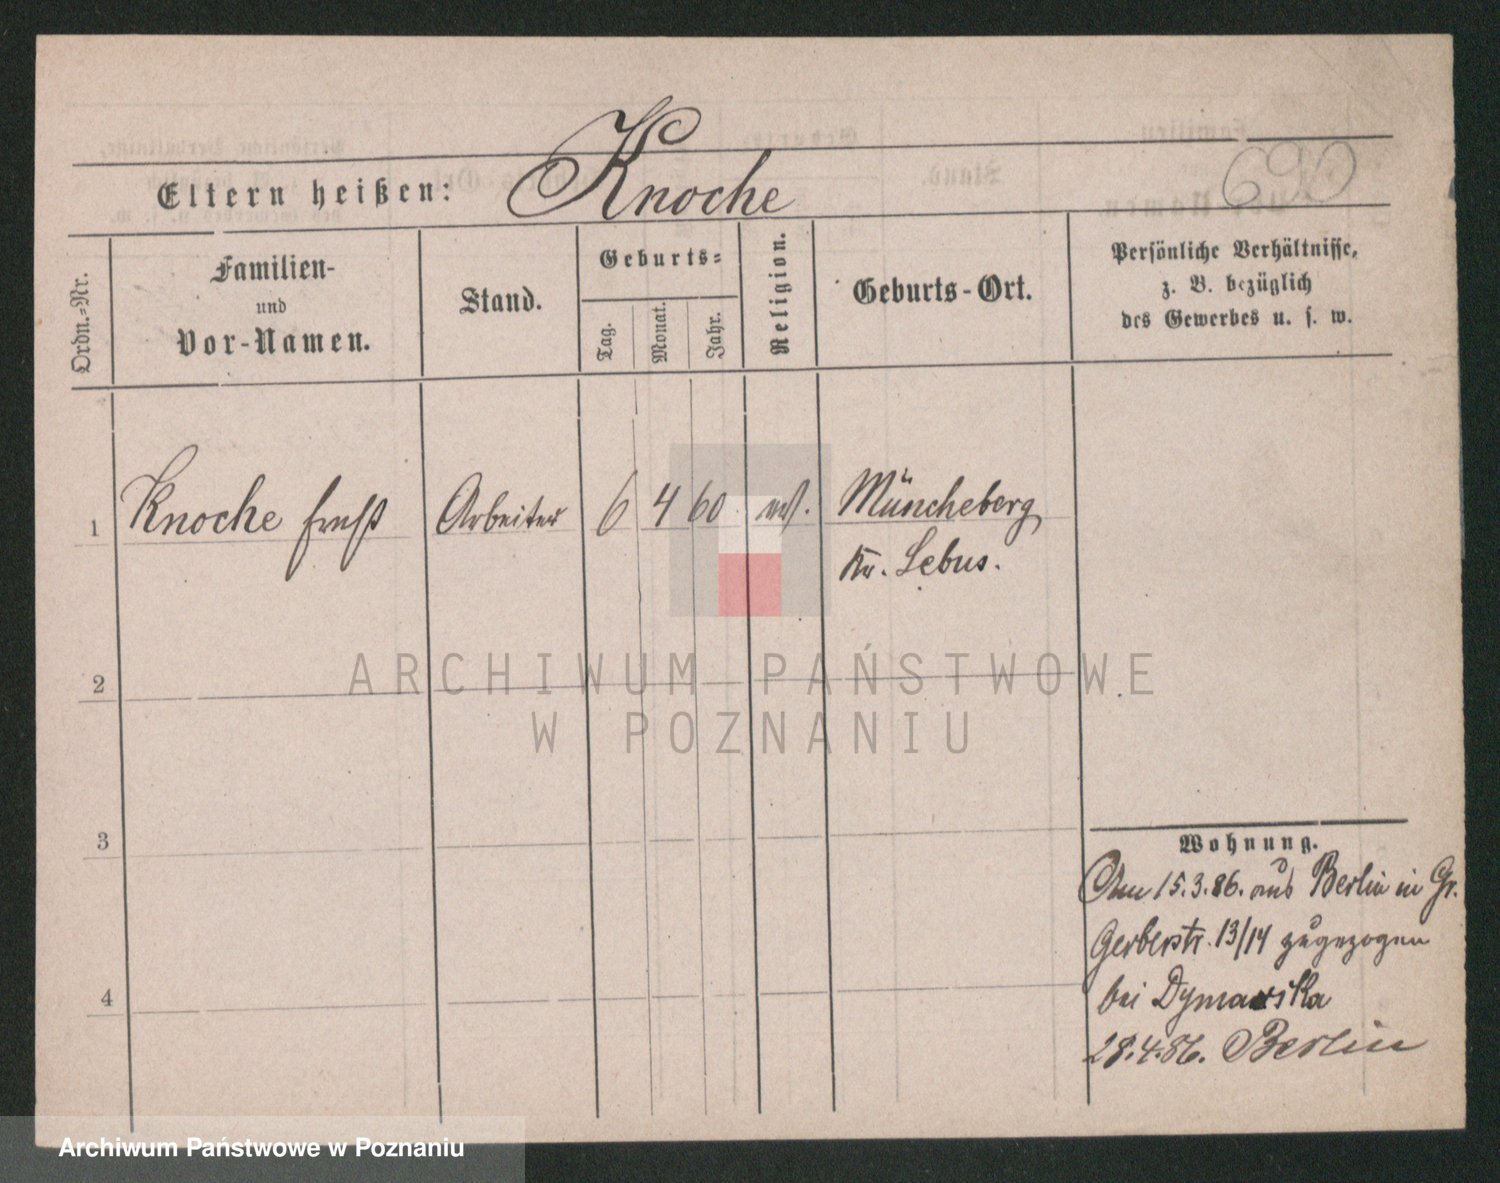 Eltern heißen: Knoche
Ordn.-Nr.
Familien-
und
Vor-Namen.
Stand.
Geburts-
Tag.
Monat.
Jahr.
Religion.
Geburts-Ort.
Persönliche Verhältnisse,
z. B. bezüglich
des Gewerbes u. s. w.
1 Knoche Ernst Arbeiter 6 4 60 Müncheberg
Kr. Lebus.
2
3
4
Wohnung.
Am 15.3.86. aus Berlin in Gr.
Gerberstr. 13/14 zugezogen
bei Dymarska
28.4.86. Berlin
ARCHIWUM PAŃSTWOWE
W POZNANIU
Archiwum Państwowe w Poznaniu